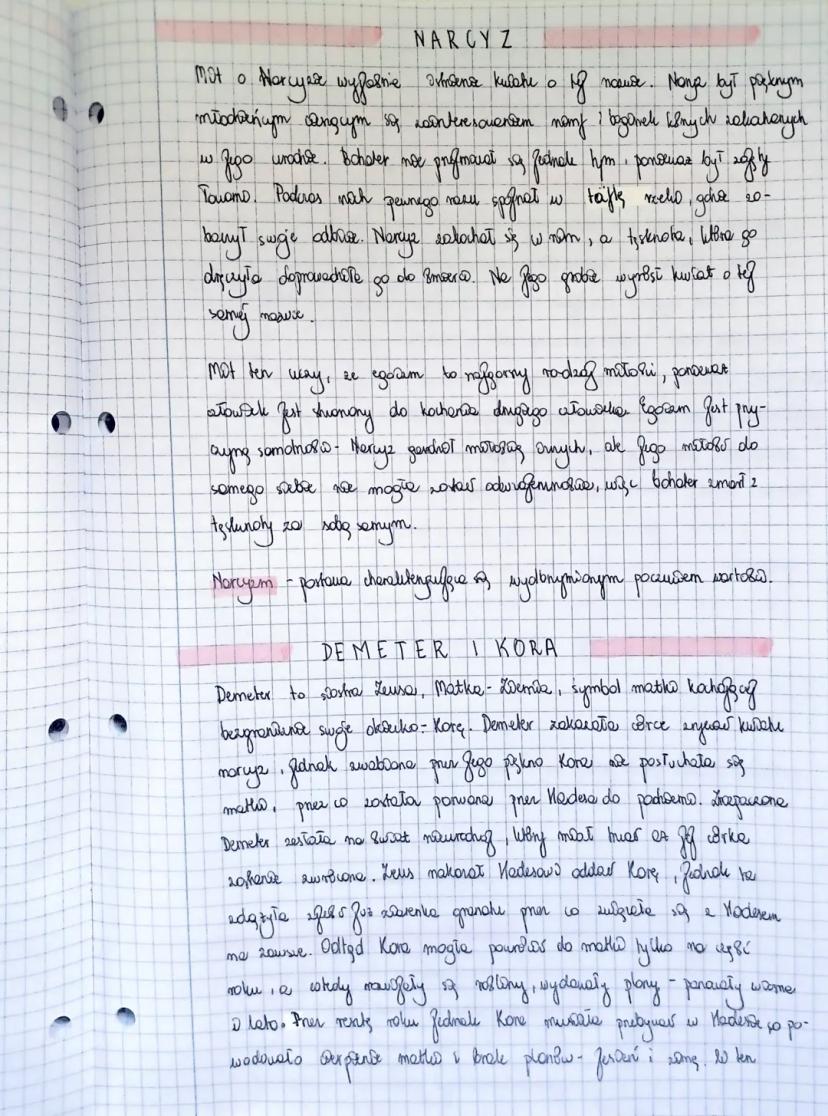 NARCYZ
Mit o Narcyzie wyjaśnia istnienie kwiatu o tej nazwie. Narcyz był pięknym
młodzieńcem cieszącym się zainteresowaniem nimf i boginek silnych zakochanych
w jego urodzie. Bohater nie przejmował się jednak tym, ponieważ był zajęty
łowami. Podczas nich pewnego razu spojrzał w taflę rzeki, gdzie zo-
baczył swoje odbicie. Narcyz zakochał się w nim, a tęsknota, która go
dręczyła doprowadziła go do śmierci. Na jego grobie wyrósł kwiat o tej
samej nazwie.
Mit ten uczy, że egoizm to najgorszy rodzaj miłości, ponieważ
człowiek jest stworzony do kochania drugiego człowieka. Egoizm jest przy-
czyną samotności - Narcyz gardził miłością innych, ale jego miłość do
samego siebie nie mogła zostać odwzajemniona, więc bohater zmarł z
tęsknoty za sobą samym.
Narcyzm - postawa charakteryzująca się wyolbrzymionym poczuciem wartości.
DEMETER I KORA
Demeter to siostra Zeusa, Matka-Ziemia, symbol matki kochającej
bezgranicznie swoje dziecko - Korę. Demeter zakazała córce zrywać kwiatu
narcyz, jednak zwabiona przez jego piękno Kora nie posłuchała się
matki, przez co została porwana przez Hadesa do podziemi. Zrozpaczona
Demeter zesłała na świat nieurodzaj, który miał trwać aż jej córka
zostanie zwrócona. Zeus nakazał Hadesowi oddać Korę, jednak ta
zdążyła zjeść już ziarenko granatu przez co związała się z Hadesem
na zawsze. Odtąd Kora mogła powrócić do matki tylko na część
roku, a wtedy rozwijały się rośliny, wydawały plony - panowały wiosna
i lato. Przez resztę roku jednak Kora musiała przebywać w Hadesie co po-
wodowało cierpienie matki i brak plonów - jesień i zimę. W ten